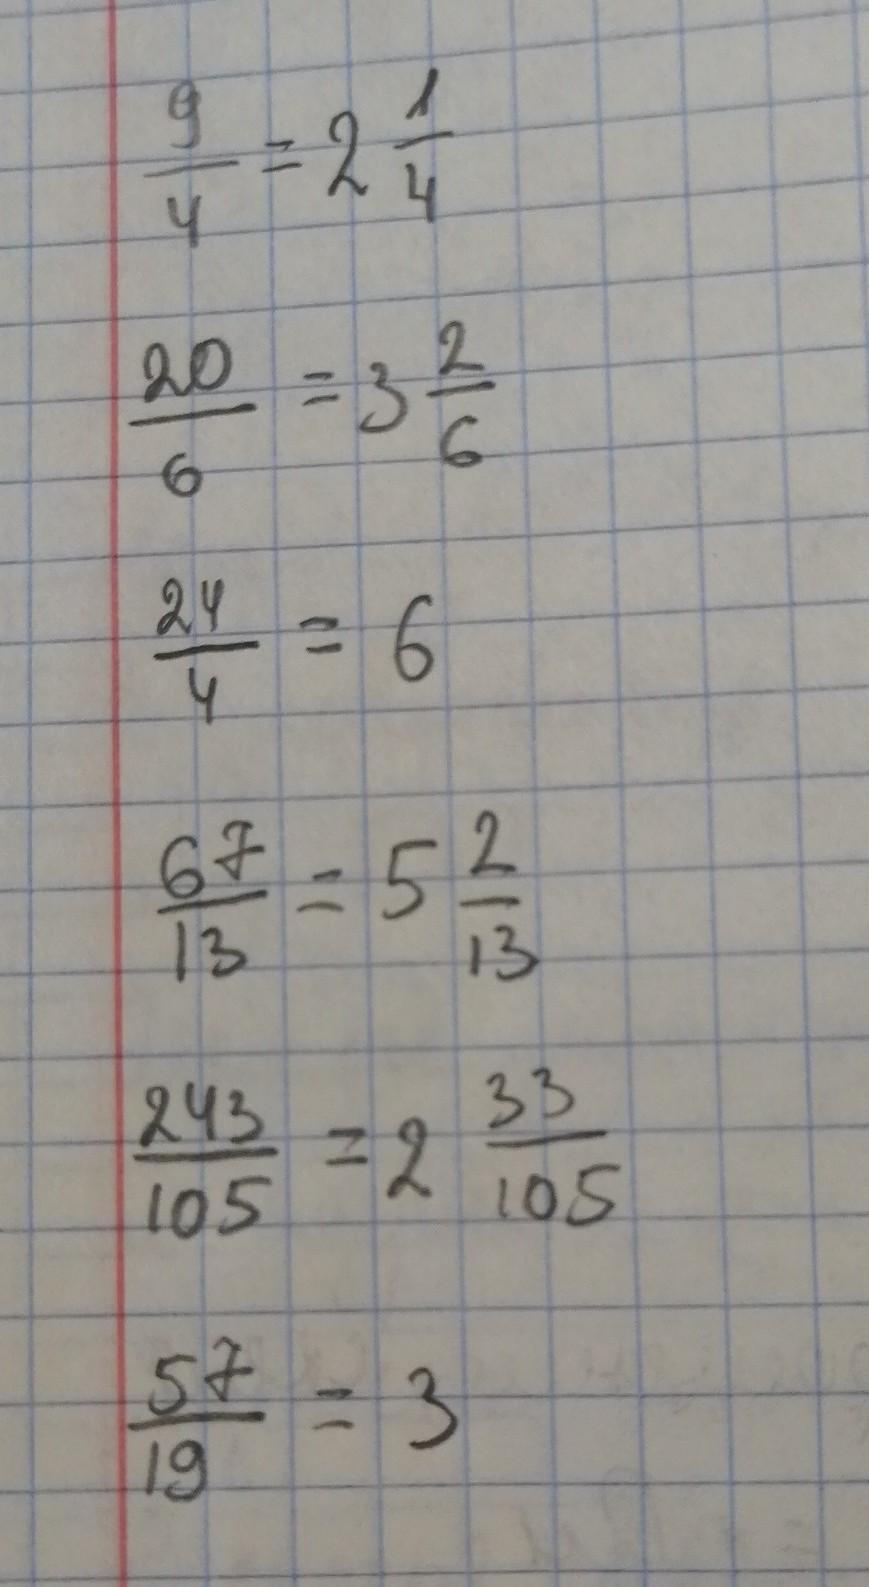 9/4 = 2 1/4
20/6 = 3 2/6
24/4 = 6
67/13 = 5 2/13
243/105 = 2 33/105
57/19 = 3